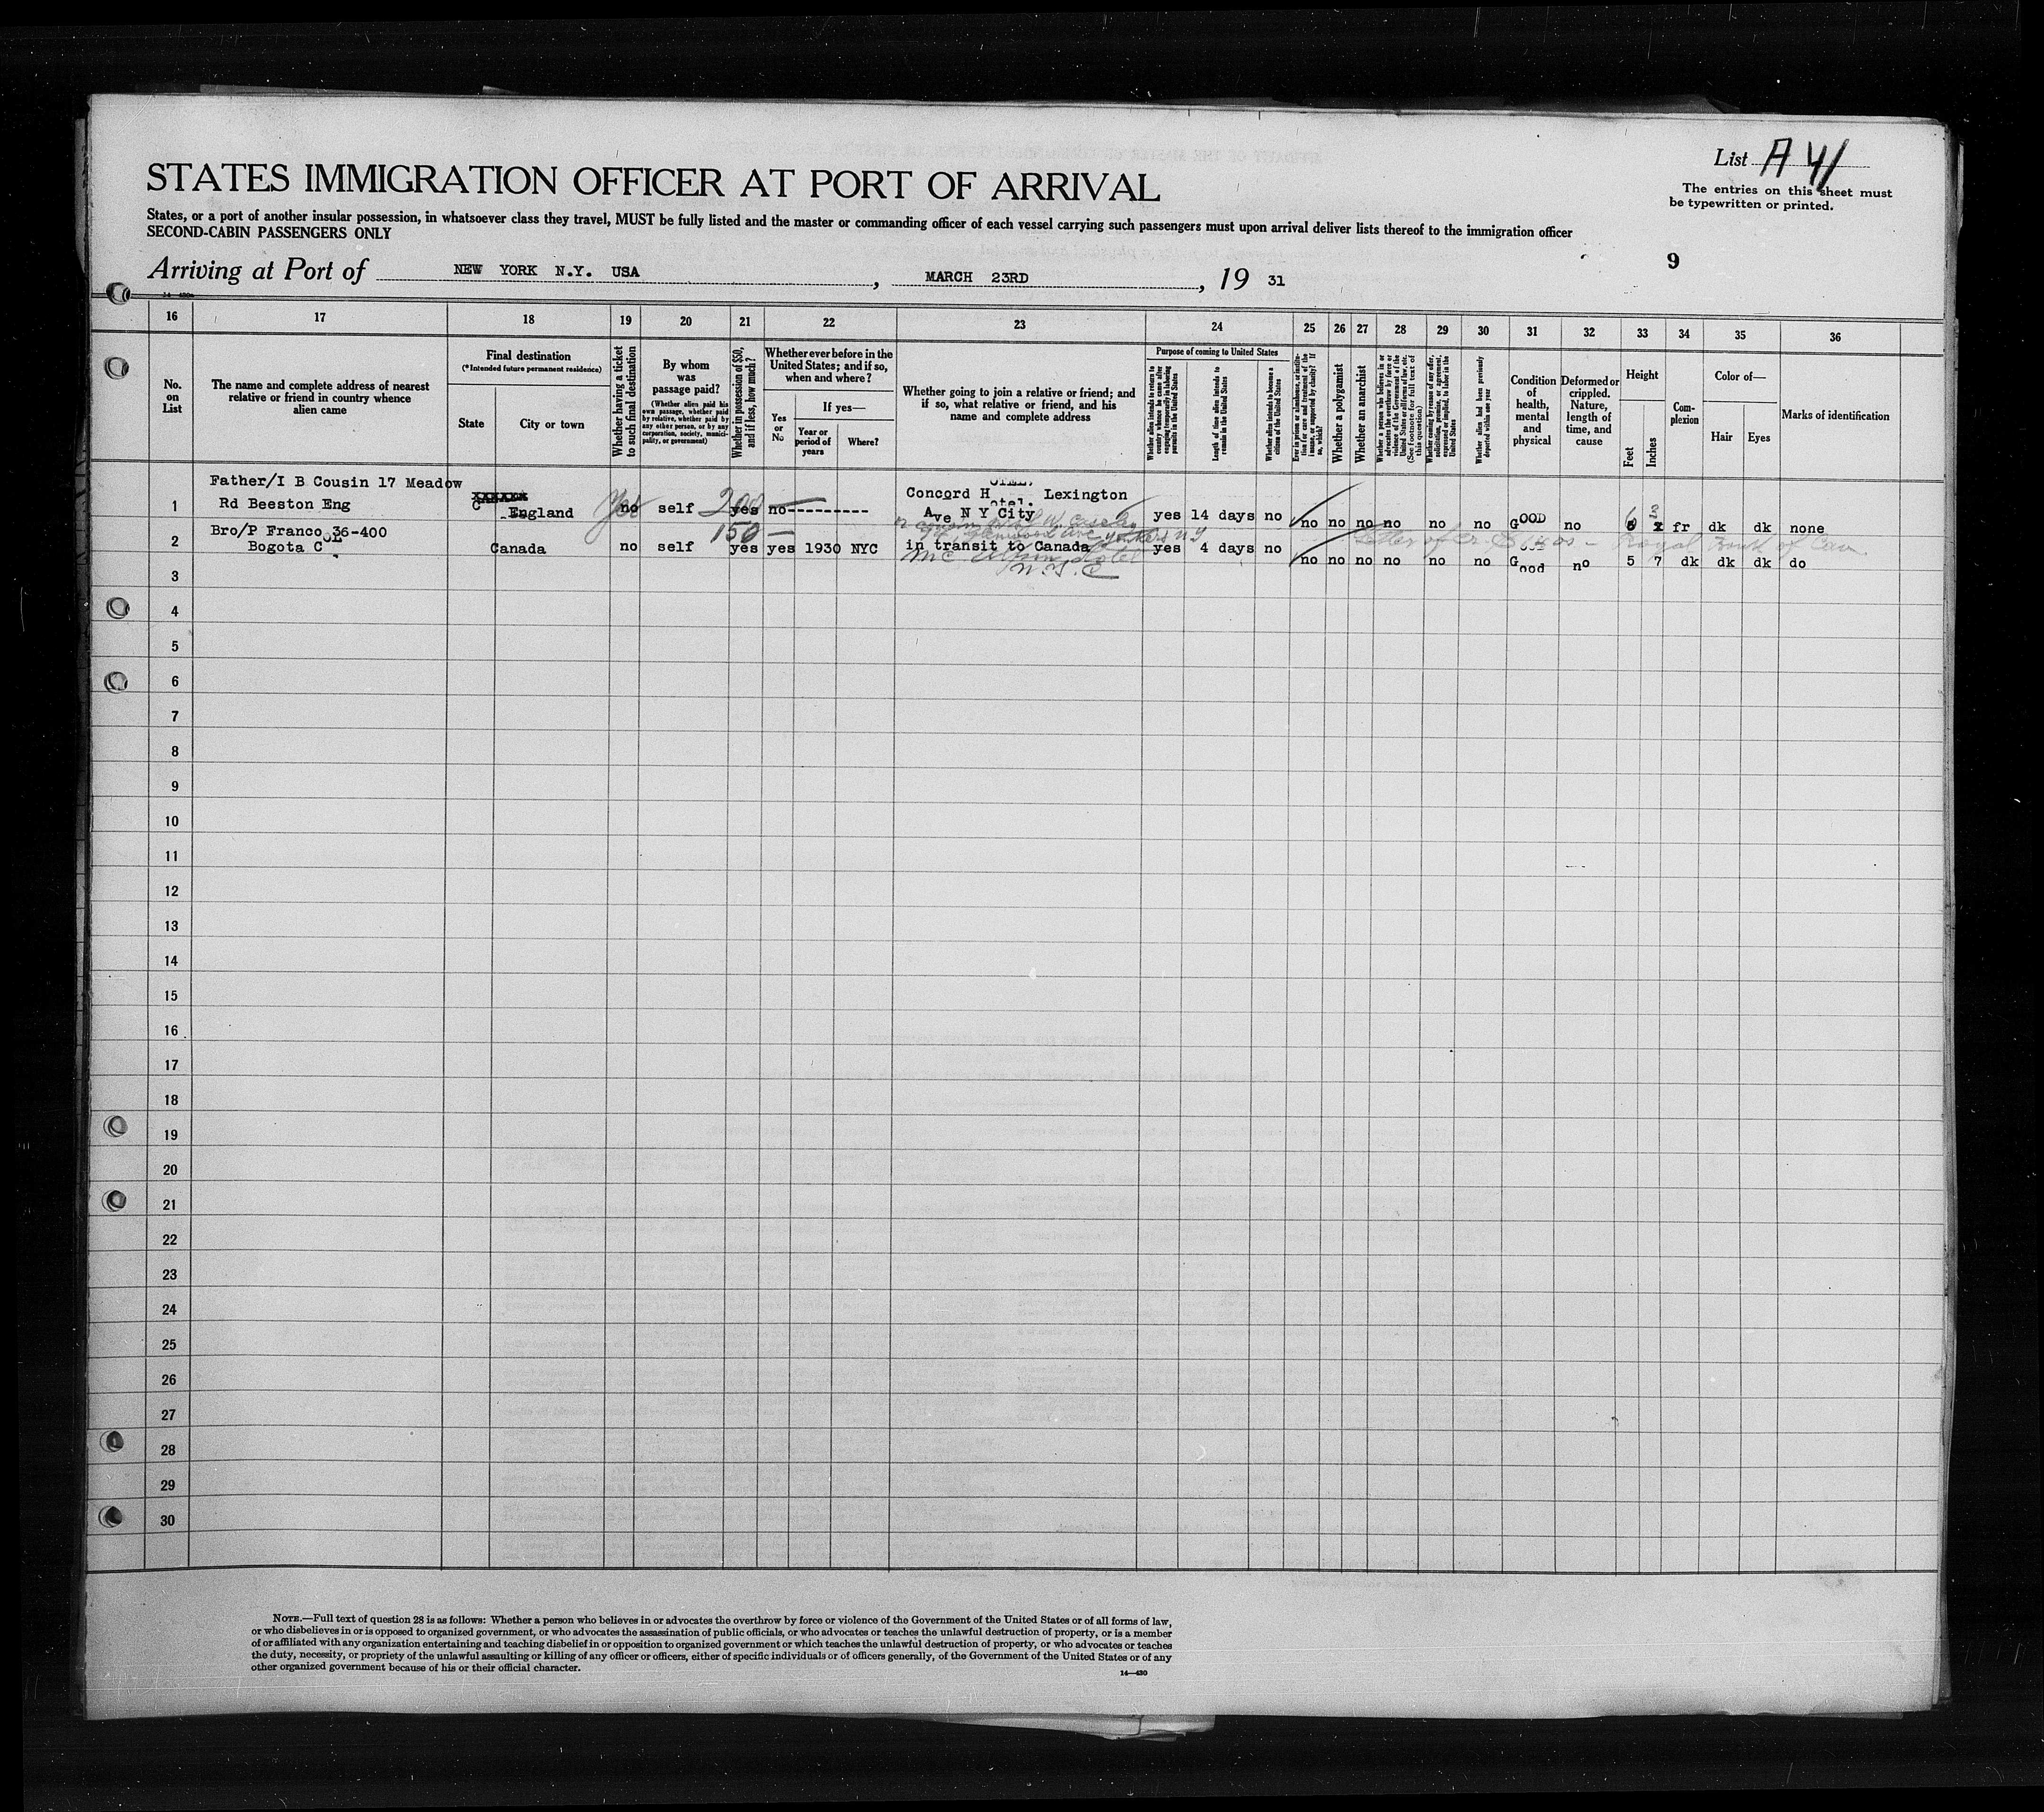 List A 41
The entries on this sheet must
be typewritten or printed.
STATES IMMIGRATION OFFICER AT PORT OF ARRIVAL
States, or a port of another insular possession, in whatsoever class they travel, MUST be fully listed and the master or commanding officer of each vessel carrying such passengers must upon arrival deliver lists thereof to the immigration officer
SECOND-CABIN PASSENGERS ONLY
9
Arriving at Port of NEW YORK N.Y. USA, MARCH 23RD, 19 31
16 17 18 19 20 21 22 23 24 25 26 27 28 29 30 31 32 33 34 35 36
No.
on
List
The name and complete address of nearest
relative or friend in country whence
alien came
Final destination
(*Intended future permanent residence)
State
City or town
Whether having a ticket
to such final destination
By whom
was
passage paid?
(Whether alien paid his
own passage, whether paid
by relative, whether paid by
any other person, or by any
corporation, society, munici-
pality, or government)
Whether in possession of $50,
and if less, how much?
Whether ever before in the
United States; and if so,
when and where?
Yes
or
No
If yes—
Year or
period of
years
Where?
Whether going to join a relative or friend; and
if so, what relative or friend, and his
name and complete address
Purpose of coming to United States
Whether alien intends to return to
country whence he came after
engaging temporarily in laboring
pursuits in the United States
Length of time alien intends to
remain in the United States
Whether alien intends to become a
citizen of the United States
Ever in prison or almshouse, or institu-
tion for care and treatment of the
insane, or supported by charity? If
so, which?
Whether a polygamist
Whether an anarchist
Whether a person who believes in or
advocates the overthrow by force or
violence of the Government of the
United States or all forms of law, etc.
(See footnote for full text of
this question)
Whether coming by reason of any offer,
solicitation, promise, or agreement,
expressed or implied, to labor in the
United States
Whether alien had been previously
deported within one year
Condition
of
health,
mental
and
physical
Deformed or
crippled.
Nature,
length of
time, and
cause
Height
Feet
Inches
Com-
plexion
Color of—
Hair
Eyes
Marks of identification
Father/I B Cousin 17 Meadow
1 Rd Beeston Eng England no Yes self yes 200 no---------- Concord Hotel. Lexington
Ave N Y City yes 14 days no no no no no no no GOOD no 6 3 fr dk dk none
Bro/P Franco 36-400
2 Bogota COL. Canada no self 150 yes yes 1930 NYC in transit to Canada yes 4 days no no no no no no no Good no 5 7 dk dk dk do
N.Y.C
3
4
5
6
7
8
9
10
11
12
13
14
15
16
17
18
19
20
21
22
23
24
25
26
27
28
29
30
NOTE.—Full text of question 28 is as follows: Whether a person who believes in or advocates the overthrow by force or violence of the Government of the United States or of all forms of law,
or who disbelieves in or is opposed to organized government, or who advocates the assassination of public officials, or who advocates or teaches the unlawful destruction of property, or is a member
of or affiliated with any organization entertaining and teaching disbelief in or opposition to organized government or which teaches the unlawful destruction of property, or who advocates or teaches
the duty, necessity, or propriety of the unlawful assaulting or killing of any officer or officers, either of specific individuals or of officers generally, of the Government of the United States or of any
other organized government because of his or their official character.
14—430